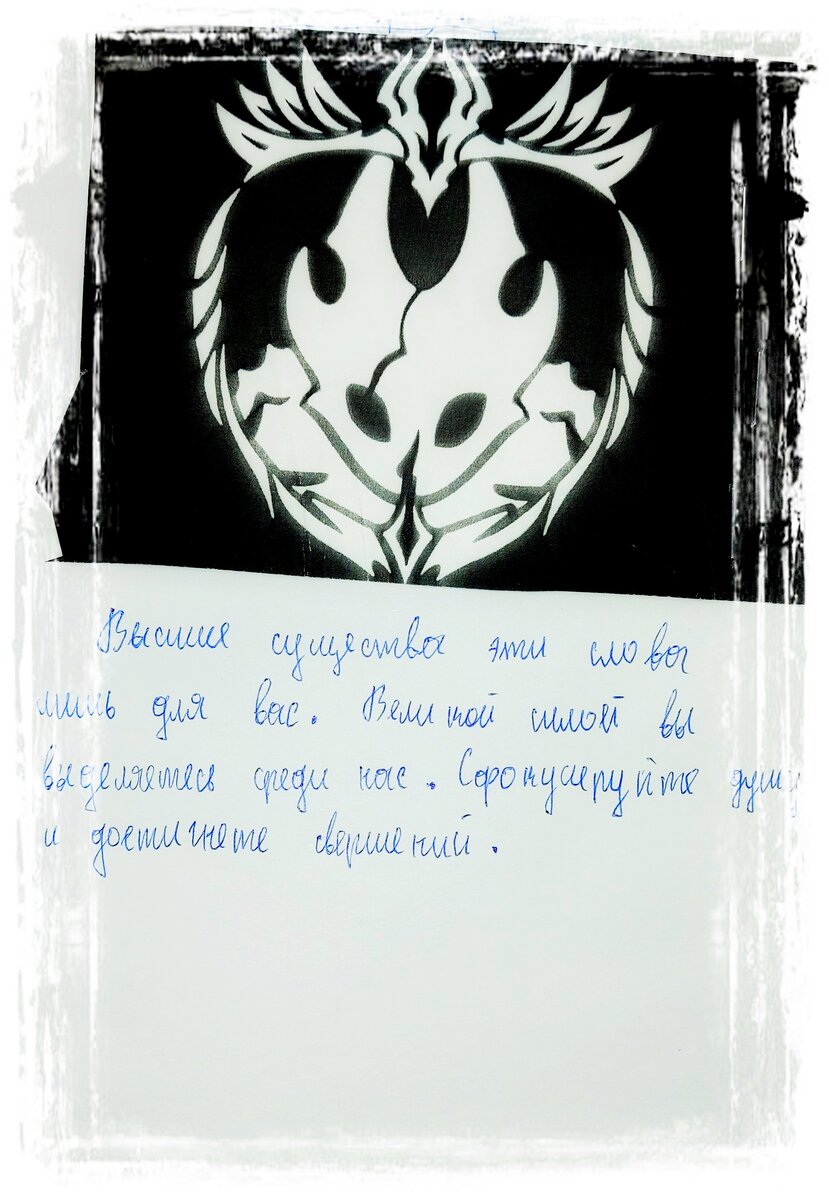 Высшие существа эти слова
лишь для вас. Великой силой вы
выделяетесь среди нас. Сфокусируйте душу
и достигнете свершений.